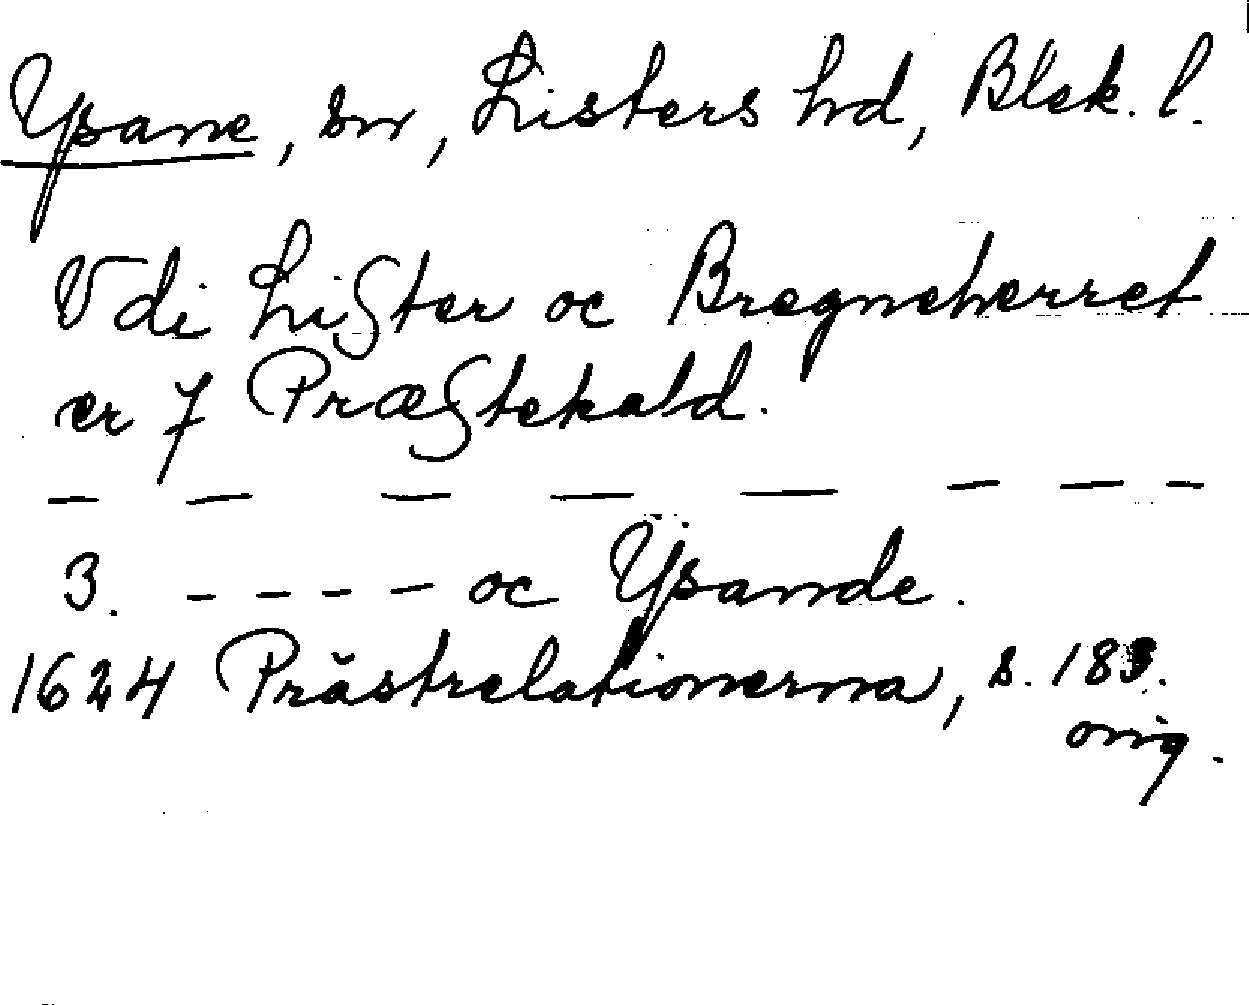 Ysane, sn, Listers hd, Blek. l.
Vdi Lister oc Bregneherret
er 7 Præstekald.
— — — — — — — —
3. - - - - oc Ysande.
1624 Prästrelationerna, s. 183.
orig.